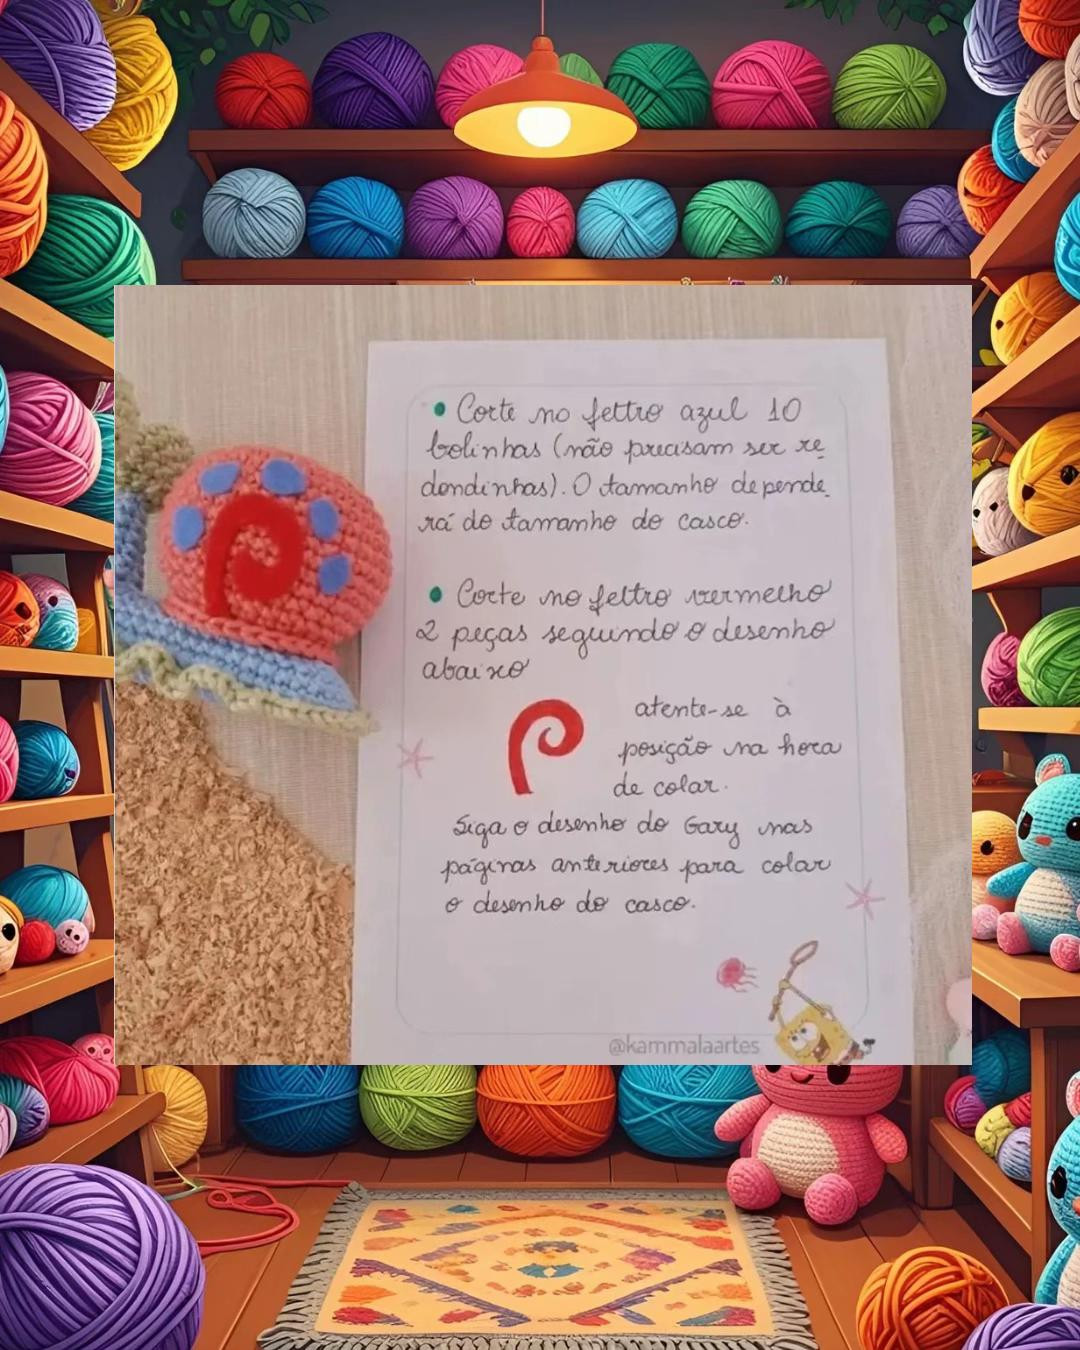 • Corte no feltro azul 10
bolinhas (não precisam ser re
dondinhas). O tamanho depende
rá do tamanho do casco.
• Corte no feltro vermelho
2 peças seguindo o desenho
abaixo
atente-se à
posição na hora
de colar.
Siga o desenho do Gary nas
páginas anteriores para colar
o desenho do casco.
@kammalaartes